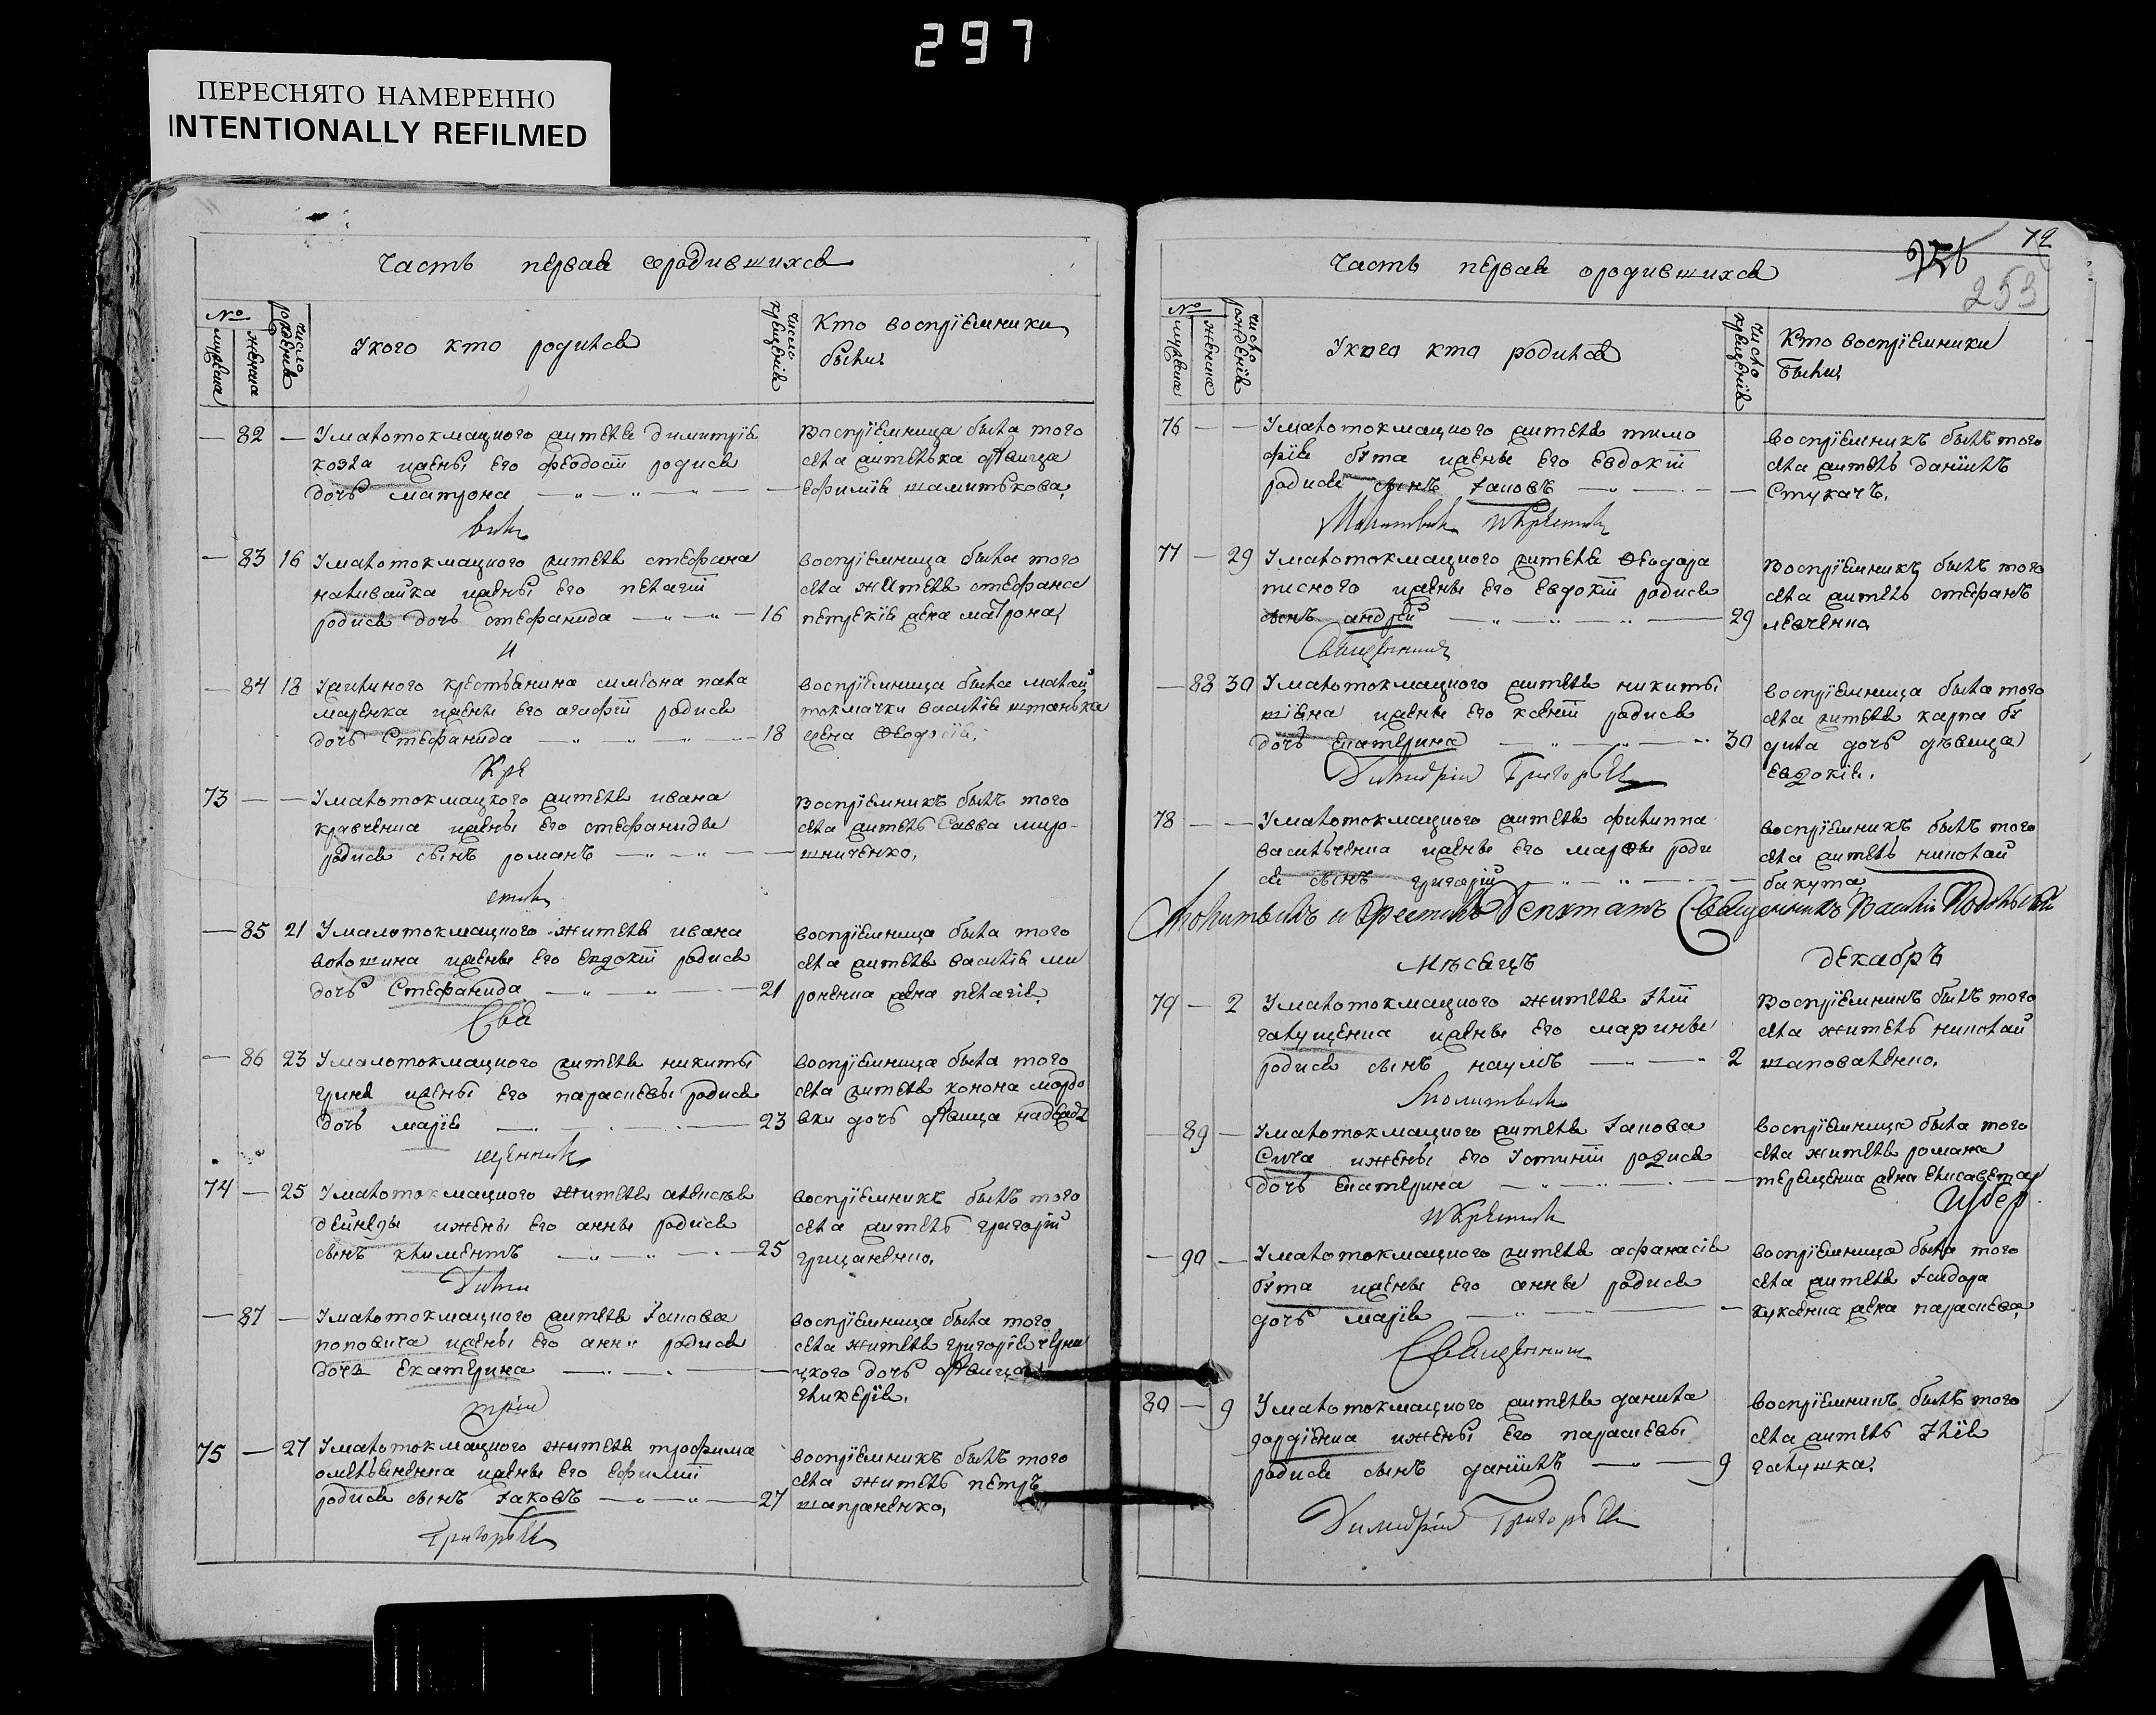 297
ПЕРЕСНЯТО НАМЕРЕННО
INTENTIONALLY REFILMED
Часть первая ородившихся
№
мужеска
женска
число рожденія
Укого кто родился
число крещенія
Кто воспріемники
были
— 82 — Умалотокмацкого жителя димитрія
козла ижены его феодосіи родися
дочь матрона
воспріемница была того
села жителька дѣвица
ефимія
83 16 Умалотокмацкого жителя стефана
наливайка ижены его пелагіи
родися дочь стефанида 16
воспріемница была того
села жителя стефана
жена матрона
и
84 18
крестьянина симеона пала
маренка ижены его агафіи родися
дочь Стефанида 18
воспріемница была малой
токмачки василія штанька
жена Ѳеодосія
Кре
73 — — Умалотокмацкого жителя ивана
кравченка ижены его стефаниды
родися сынъ романъ
воспріемникъ былъ того
села житель Савва миро-
шниченко,
стилъ
85 21 Умалотокмацкого жителя ивана
волошина ижены его евдокіи родися
дочь Стефанида 21
воспріемница была того
села жителя василія ми
роненка жена пелагія
Свя
86 23 Умалотокмацкого жителя никиты
гриня ижены его параскевы родися
дочь марія 23
воспріемница была того
села жителя конона мордо
вки дочь дѣвица
щенникъ
74 — 25 Умалотокмацкого жителя алексѣя
дейнеды ижены его анны родися
сынъ климентъ 25
воспріемникъ былъ того
села житель григорій
грицаненко.
Дими
87 — Умалотокмацкого жителя Іакова
поповича ижены его анны родися
дочь Екатерина
воспріемница была того
села жителя григорія черни
цкого дочь дѣвица
гликерія.
трій
75 — 27 Умалотокмацкого жителя трофима
омельяненка ижены его ефиміи
родися сынъ Іаковъ 27
воспріемникъ былъ того
села житель петръ
шапраненко,
Григорьевъ
Часть первая ородившихся
72
253
№
мужеска
женска
число рожденія
Укого кто родился
число крещенія
Кто воспріемники
были
76 — — Умалотокмацкого жителя тимо
фія бута ижены его Евдокіи
родися сынъ Іаковъ
воспріемникъ былъ того
села житель даніилъ
Стукачъ.
Молитвилъ икрестилъ
77 — 29 Умалотокмацкого жителя Ѳеодора
писного ижены его Евдокіи родися
сынъ андрей 29
воспріемникъ былъ того
села житель стефанъ
левченко
Священникъ
88 30 Умалотокмацкого жителя никиты
шіяна ижены его ксеніи родися
дочь екатерина 30
воспріемница была того
села жителя карпа бу
дила дочь дѣвица
евдокія.
Димитрій Григорьевъ
78 — — Умалотокмацкого жителя филиппа
васильченка ижены его марѳы роди
ся сынъ григорій
воспріемникъ былъ того
села житель николай
бакута
Молитвилъ и крестилъ Депутатъ Священникъ Василій
Мѣсяцъ декабрь
79 — 2 Умалотокмацкого жителя Іліи
галущенка ижены его марины
родися сынъ наумъ 2
воспріемникъ былъ того
села житель николай
шаповаленко.
Молитвилъ
89 — Умалотокмацкого жителя Іакова
Сича ижены его Іустиніи родися
дочь екатерина
воспріемница была того
села жителя романа
терещенка жена елисавета
икрестилъ
90 — Умалотокмацкого жителя афанасія
бута ижены его анны родися
дочь марія
воспріемница была того
села жителя Ісидора
жена параскева
Священникъ
80 — 9 Умалотокмацкого жителя данила
гордіенка ижены его параскевы
родися сынъ даніилъ 9
воспріемникъ былъ того
села житель Ілія
галушка.
Димитрій Григорьевъ